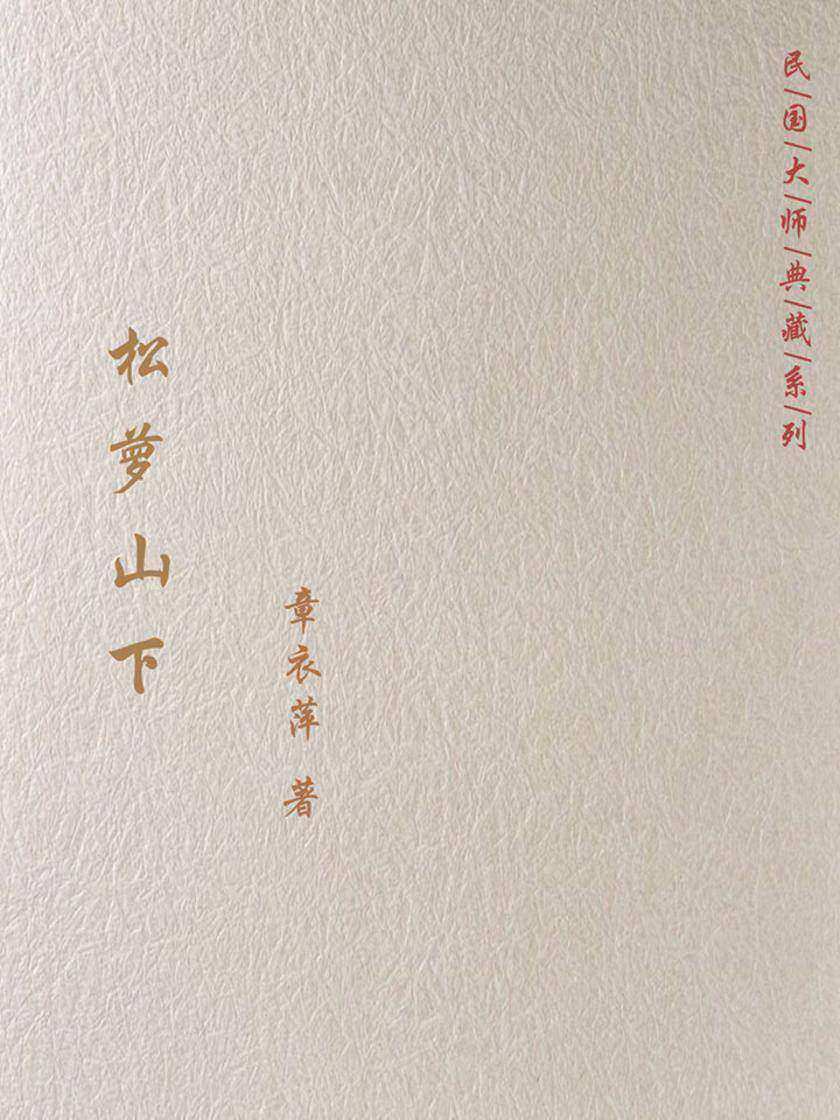 民/国/大/师/典/藏/系/列
章衣萍 著
松萝山下